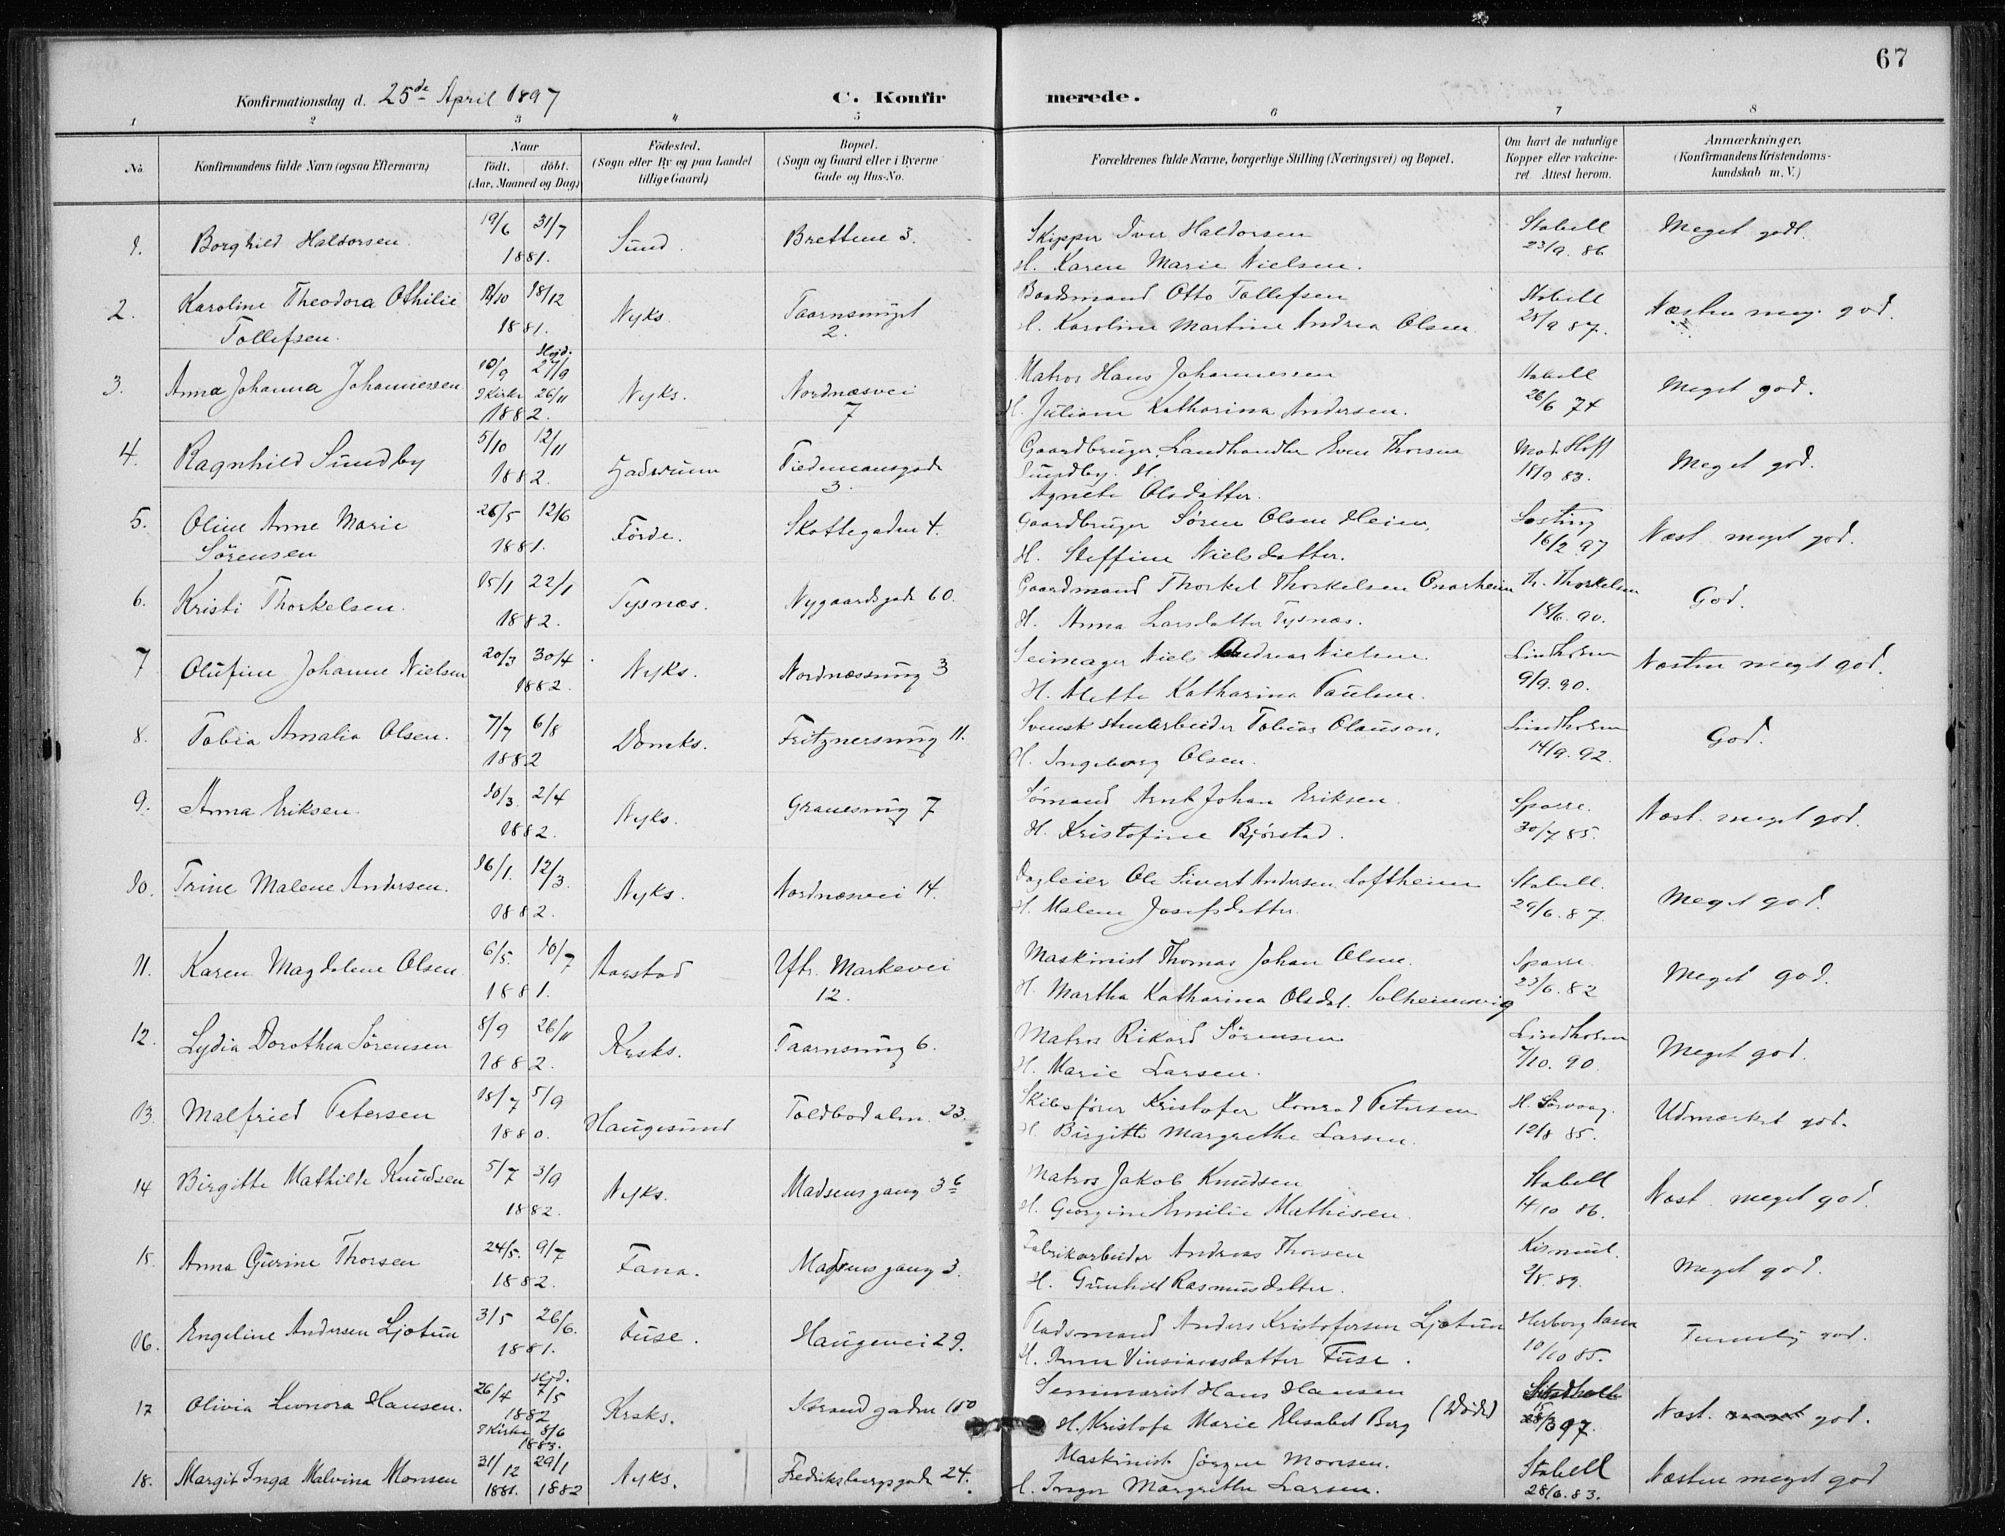 67
Konfirmationsdag d. 25de April 1897 C. Konfirmerede.
1 2 3 4 5 6 7 8
No. Konfirmandens fulde Navn (ogsaa Efternavn) Naar født. døbt. (Aar, Maaned og Dag) Fødested. (Sogn eller By og paa Landet tillige Gaard) Bopæl. (Sogn og Gaard eller i Byerne Gade og Hus-No. Forældrenes fulde Navne, borgerlige Stilling (Næringsvei) og Bopæl. Om havt de naturlige Kopper eller vakcineret. Attest herom. Anmærkninger. (Konfirmandens Kristendomskundskab m. V.)
1. Borghild Haldorsen. 19/6 31/7 1881. Sund. Brettene 3. Skipper Iver Haldorsen Stabell 23/9. 86 Meget godt.
H. Karen Marie Nielsen.
2. Karoline Theodora Othilie 12/10 18/12 1881. Nyks. Taarnsmuget 2. Baadsmand Otto Tollefsen Stabell 28/9 87. Næsten meg. god.
Tollefsen. H. Karoline Martine Andrea Olsen
3. Anna Johanna Johannessen 10/9 Hjd. 27/9 I Kirke 26/11 1882. Nyks. Nordnæsvei 7 Matros Hans Johannessen Stabell 26/6 74 Meget god.
H. Juliane Katharina Andersen.
4. Ragnhild Sundby 5/10 12/11 1882. Tiedemansgade 3. Gaardbruger, Landhandler Even Thorsen 18/9 83. Meget god.
Sundby. H.
Agnete Olsdatter.
5. Oline Anne Marie 26/5 12/6 1881. Førde. Skottegaden 4. Gaardbruger Søren Olsen Heien, 16/2 97 Næst. meget god.
Sørensen H. Steffine Nielsdatter.
6. Kristi Thorkelsen. 15/1 22/1 1882. Tysnæs. Nygaardsgade 60. Gaardmand Thorkel Thorkelsen Onarheim Th. Thorkelsen 18/6. 90. God.
H. Anna Larsdatter Tysnæs.
7 Olufine Johanne Nielsen 20/3 30/4 1882. Nyks. Nordnæssmug 3 Seimager Niels Andreas Nielsen. Lindholm 9/9. 90. Næsten meget god.
H. Mette Katharina Paulsen.
8. Tobia Amalia Olsen. 7/7 6/8 1882 Domks. Fritznersmug 11. Svensk Tobias Olauson. Lindholm 14/9. 92. God.
H. Ingeborg Olsen.
9. Anna Eriksen. 10/3. 2/4 1882. Nyks. Granesmug 7 Sømand Arnt Johan Eriksen. Sparre. 30/7 85. Næst. meget god.
H. Kristofine Bjørstad.
10. Trine Malene Andersen. 16/1. 12/3. 1882. Nyks. Nordnæsvei 14. Dagleier Ole Sivert Andersen Loftheim Stabell. 29/6. 87. Meget god.
H. Malene Josefsdatter.
11. Karen Magdalene Olsen. 6/5. 10/7 1881. Aarstad Yttr. Markevei 12. Maskinist Thomas Johan Olsen. Sparre. 23/6. 82 Meget god.
H. Martha Katharina Olsdat. Solheimsvig
12. Lydia Dorothea Sørensen 8/9 26/11 1882. Krsks. Taarnsmug 6. Matros Rikard Sørensen Lindholm 7/10. 90. Meget god.
H. Marie Larsen.
13. Malfried Petersen 18/7 5/9 1880. Haugesund Toldbodalm. 23. Skibsfører Kristofer Konrad Petersen 12/8 85. Udmærket god.
H. Birgitte Margrethe Larsen.
14 Birgitte Mathilde Knudsen 5/7 3/9 1882. Nyks. Madsensgang 3 Matros Jakob Knudsen Stabell 14/10 86. Næst. meget god.
H. Georgine Emilie Mathisen.
15. Anna Gurine Thorsen 24/5. 9/7 1882. Fana. Madsensgang 3. Fabrikarbeider Andreas Thorsen 2/8. 89. Meget god.
H. Gunhild Rasmusdatter.
16. Engeline Andersen Ljotun 3/5 26/6. 1881. Fuse. Haugevei 29. Pladsmand Anders Kristofersen Ljotun 10/10 85. Temmelig god.
H. Anna Vinsiansdatter Fuse.
17 Olivia Leonora Hansen. 26/4 Hjd. 7/5 1882 I Kirke 8/6 1883. Krsks. Strandgaden 150 Seminarist Hans Hansen 97. Næst. meget god.
H. Kristofa Marie Elisabet Berg (Døde)
18. Margit Inga Malvina Monsen 31/12 1881. 29/1 1882 Nyks. Fredriksbergsgade 24. Maskinist Jørgen Monsen. Stabell 28/6. 83. Næsten meget god
H. Inger Margrethe Larsen.